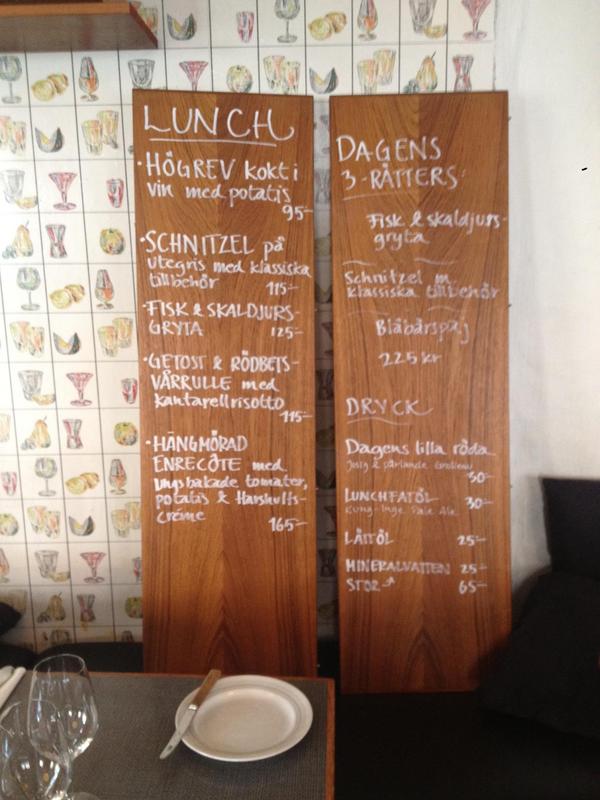 LUNCH
·HÖGREV kokt i
vin med potatis
95:-
·SCHNITZEL på
utegris med klassiska
tillbehör 115:-
·FISK & SKALDJURS-
GRYTA 125:-
·GETOST & RÖDBETS-
VÅRRULLE med
kantarellrisotto
115:-
·HÄNGMÖRAD
ENRECÔTE med
ungsbakade tomater,
potatis & Harshults-
créme 165:-
DAGENS
3-RÄTTERS:
Fisk & skaldjurs-
gryta
Schnitzel m.
klassiska tillbehör
Blåbärspaj
225 kr
DRYCK
Dagens lilla röda
30:-
LUNCHFATÖL 30:-
Kung-Inge. Pale Ale.
LÄTTÖL 25:-
MINERALVATTEN 25:-
STOR 65:-